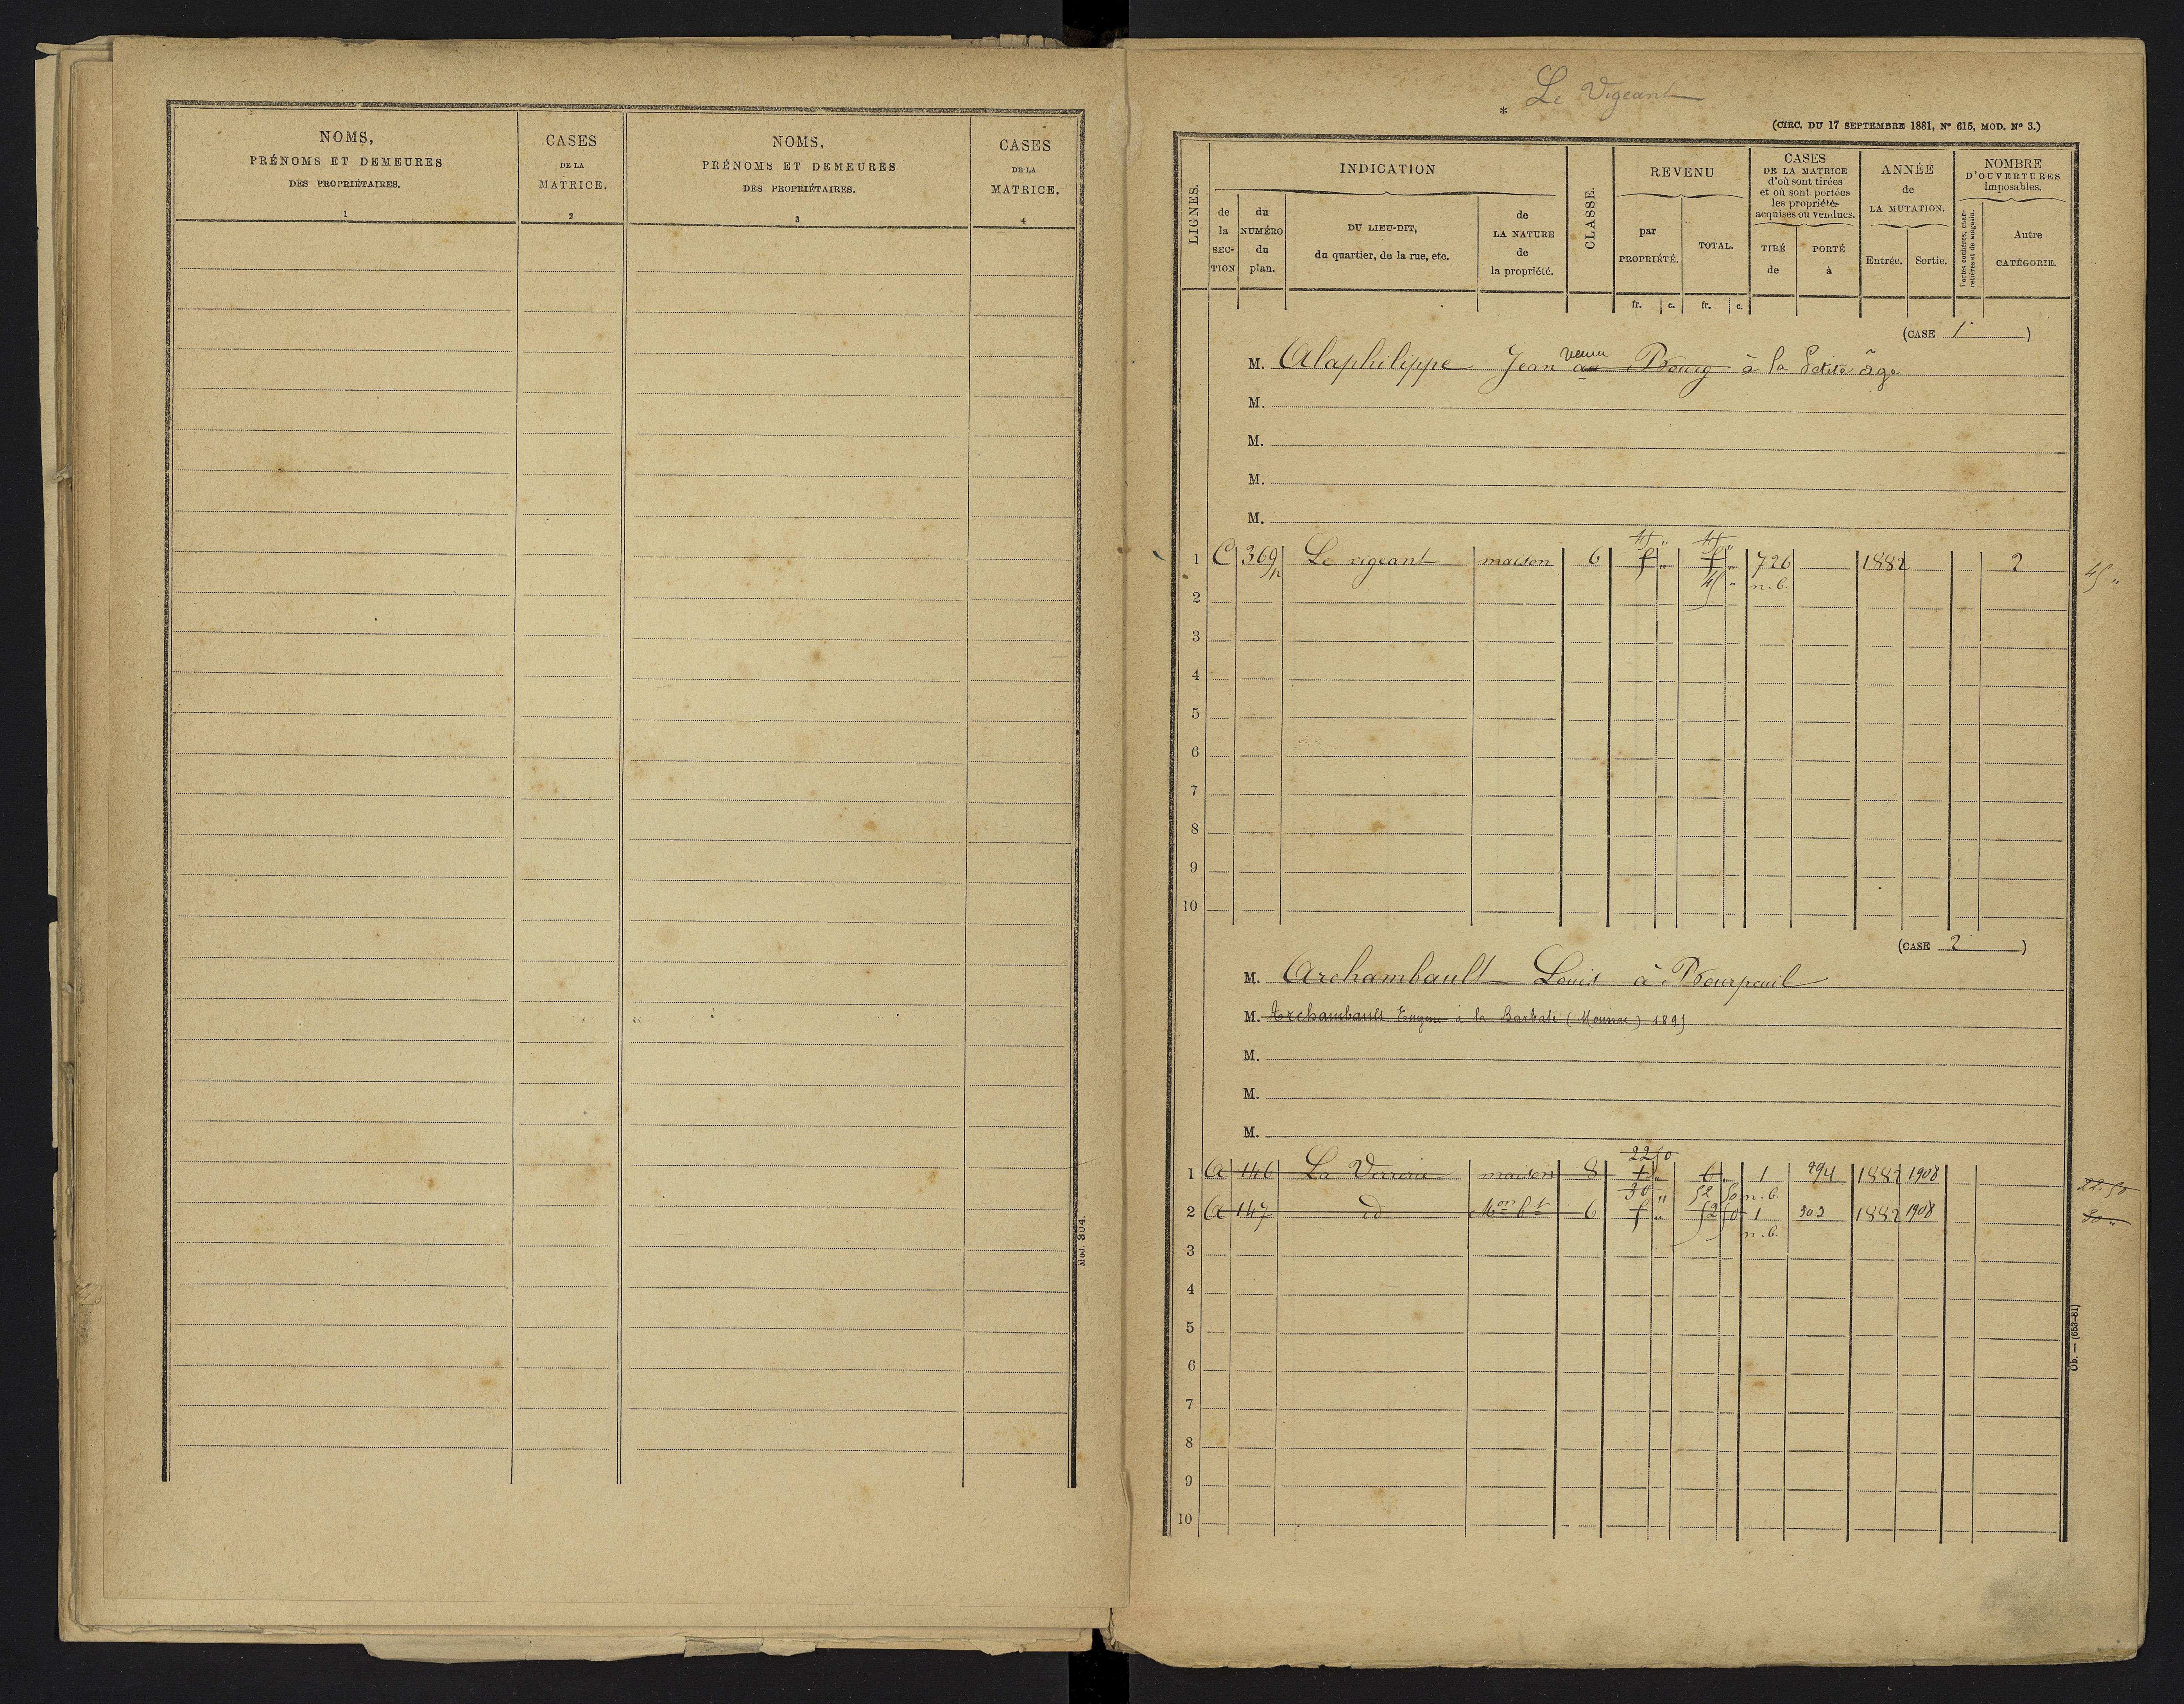 NOMS,
PRÉNOMS ET DEMEURES
DES PROPRIÉTAIRES.
1
CASES
DE LA
MATRICE.
2
NOMS,
PRÉNOMS ET DEMEURES
DES PROPRIÉTAIRES.
3
CASES
DE LA
MATRICE.
4
Mod. 304.
Le Vigeant
*
(CIRC. DU 17 SEPTEMBRE 1881, N° 615, MOD. N° 3.)
LIGNES.
INDICATION
de la SECTION
du NUMÉRO du plan.
DU LIEU-DIT,
du quartier, de la rue, etc.
de LA NATURE de la propriété.
CLASSE.
REVENU
par PROPRIÉTÉ.
TOTAL.
fr. c. fr. c.
CASES
DE LA MATRICE
d'où sont tirées
et où sont portées
les propriétés
acquises ou vendues.
TIRÉ de
PORTÉ à
ANNÉE
de
LA MUTATION.
Entrée. Sortie.
NOMBRE
D'OUVERTURES
imposables.
Portes cochères, charretières et de magasin.
Autre CATÉGORIE.
(CASE 1)
M. Alaphilippe Jean au Bourg à la Petite âge
M.
M.
M.
M.
45 " 45 "
1 C 369 p Le vigeant maison 6 5 " 5 " 726 1882 2 45 "
45 " n.b.
2
3
4
5
6
7
8
9
10
(CASE 2)
M. Archambault Louis à Bourpeuil
M. Archambault Eugene à la Barbate (Moussac) 1895
M.
M.
M.
22 50
1 A 146 La Verrerie maison 8 1 " 6 " 1 994 1882 1908 22.50
30 " 52 50 n.b.
2 A 147 id Mon bt 6 5 " 52 50 1 503 1882 1908 30 "
n.b.
3
4
5
6
7
8
9
10
Ob. — (653-81)